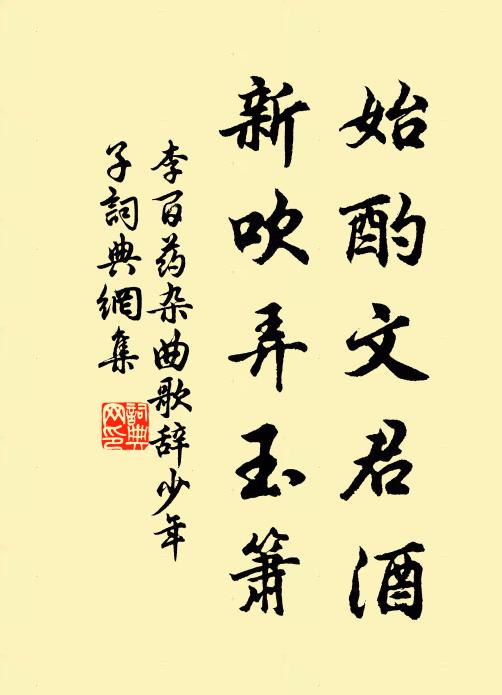 始酌文君酒
新吹弄玉簫
李百药杂曲歌辞少年
子詞典網集
詞典网印